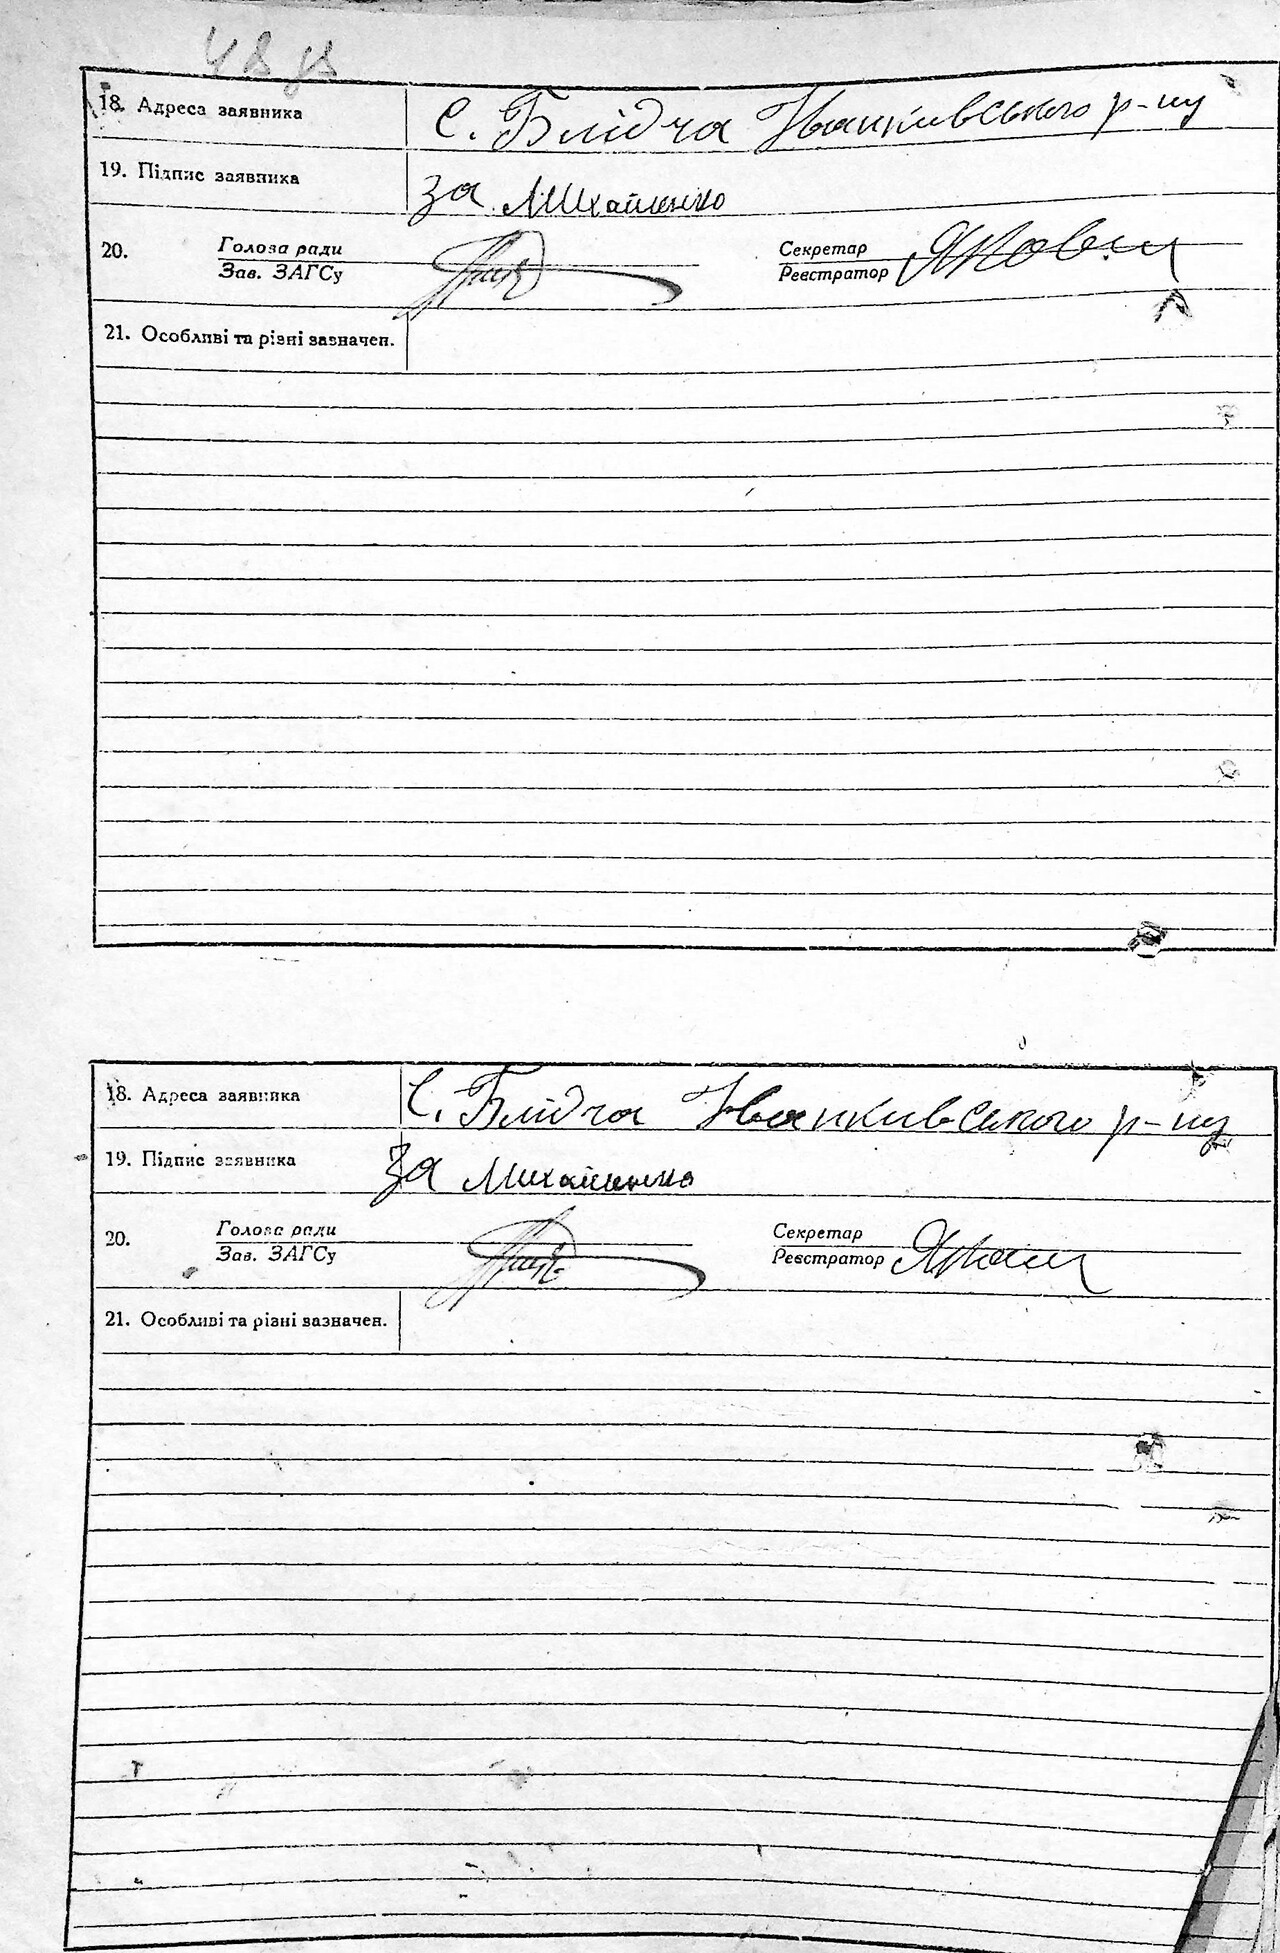 48 зв
18. Адреса заявника С. Блідча Иванкивського р-ну
19. Підпис заявника за Михайленко
20. Голова ради Секретар
Зав. ЗАГСу Реєстратор
21. Особливі та різні зазначен.
18. Адреса заявника С. Блідча Иванкивського р-ну
19. Підпис заявника за Михайленко
20. Голова ради Секретар
Зав. ЗАГСу Реєстратор
21. Особливі та різні зазначен.